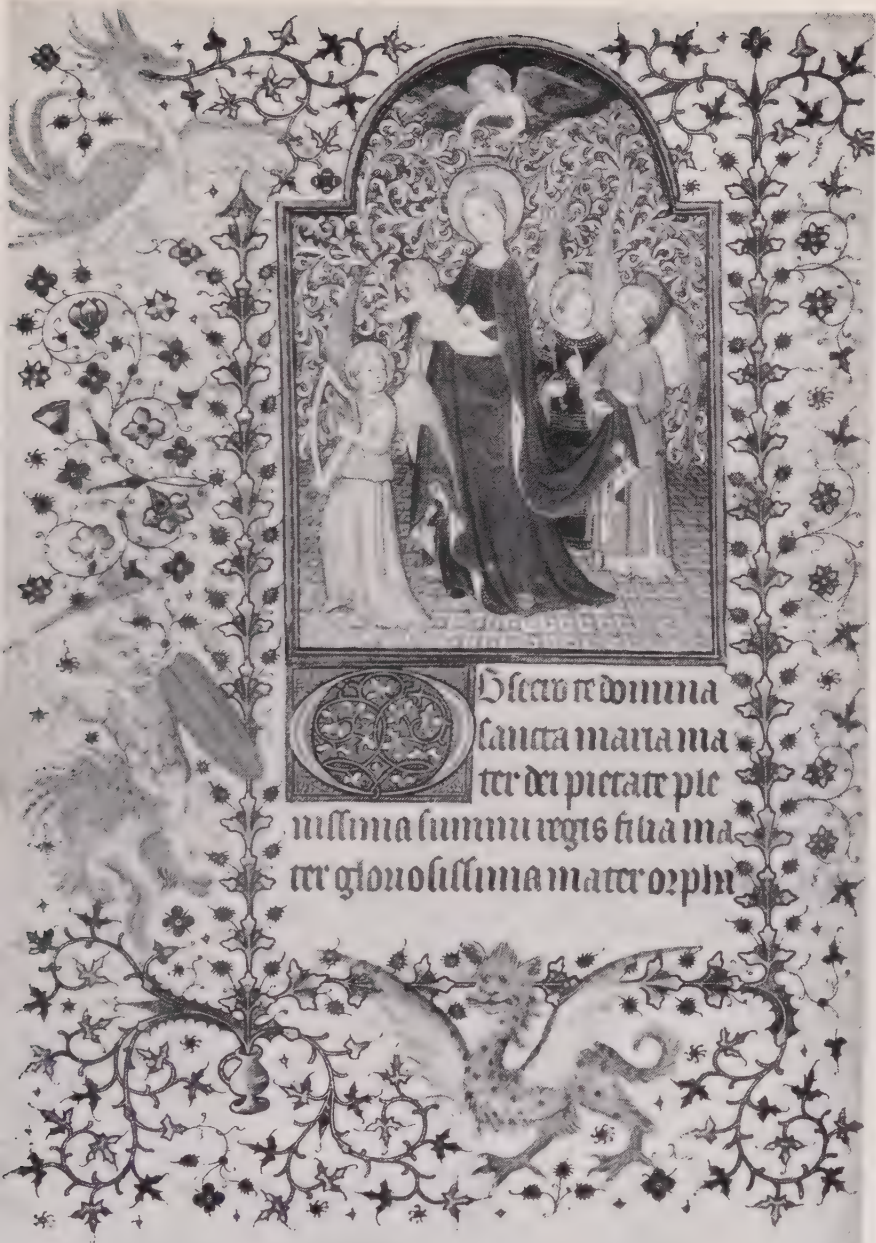 Obsecro te domina
sancta maria ma
ter dei pietate ple
nissima summi regis filia ma
ter gloriosissima mater orpha